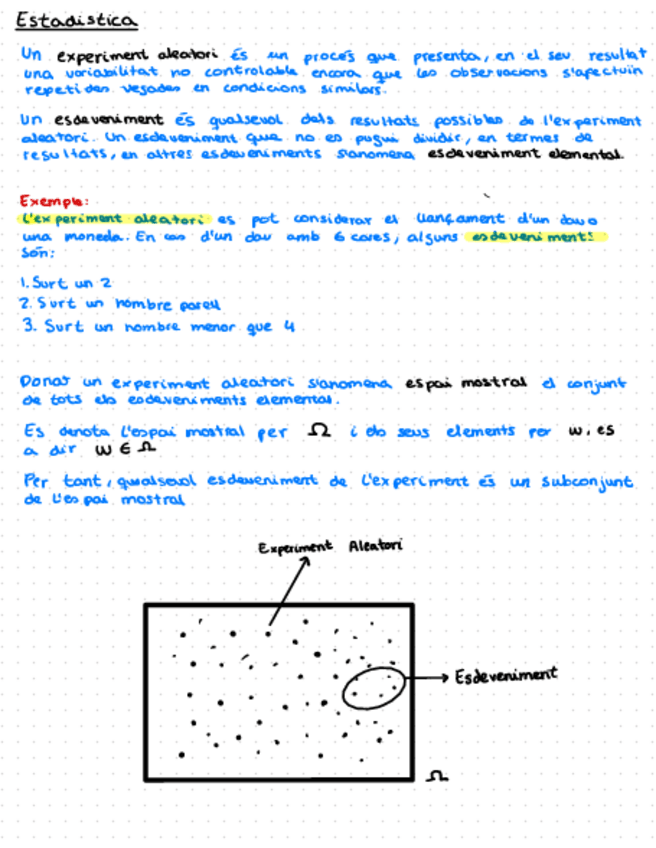 Estadistica
Un experiment aleatori és un procés que presenta, en el seu resultat
una variabilitat no controlable encara que les observacions s'efectuïn
repetides vegades en condicions similars.
Un esdeveniment és qualsevol dels resultats possibles de l'experiment
aleatori. Un esdeveniment que no es pugui dividir, en termes de
resultats, en altres esdeveniments s'anomena esdeveniment elemental.
Exemple:
L'experiment aleatori es pot considerar el llançament d'un dau o
una moneda. En cas d'un dau amb 6 cares, alguns esdeveniments
són:
1. Surt un 2
2. Surt un nombre parell
3. Surt un nombre menor que 4
Donat un experiment aleatori s'anomena espai mostral el conjunt
de tots els esdeveniments elementals.
Es denota l'espai mostral per Ω i els seus elements per w, és
a dir w ∈ Ω
Per tant, qualsevol esdeveniment de l'experiment és un subconjunt
de l'espai mostral
Experiment Aleatori
Esdeveniment
Ω